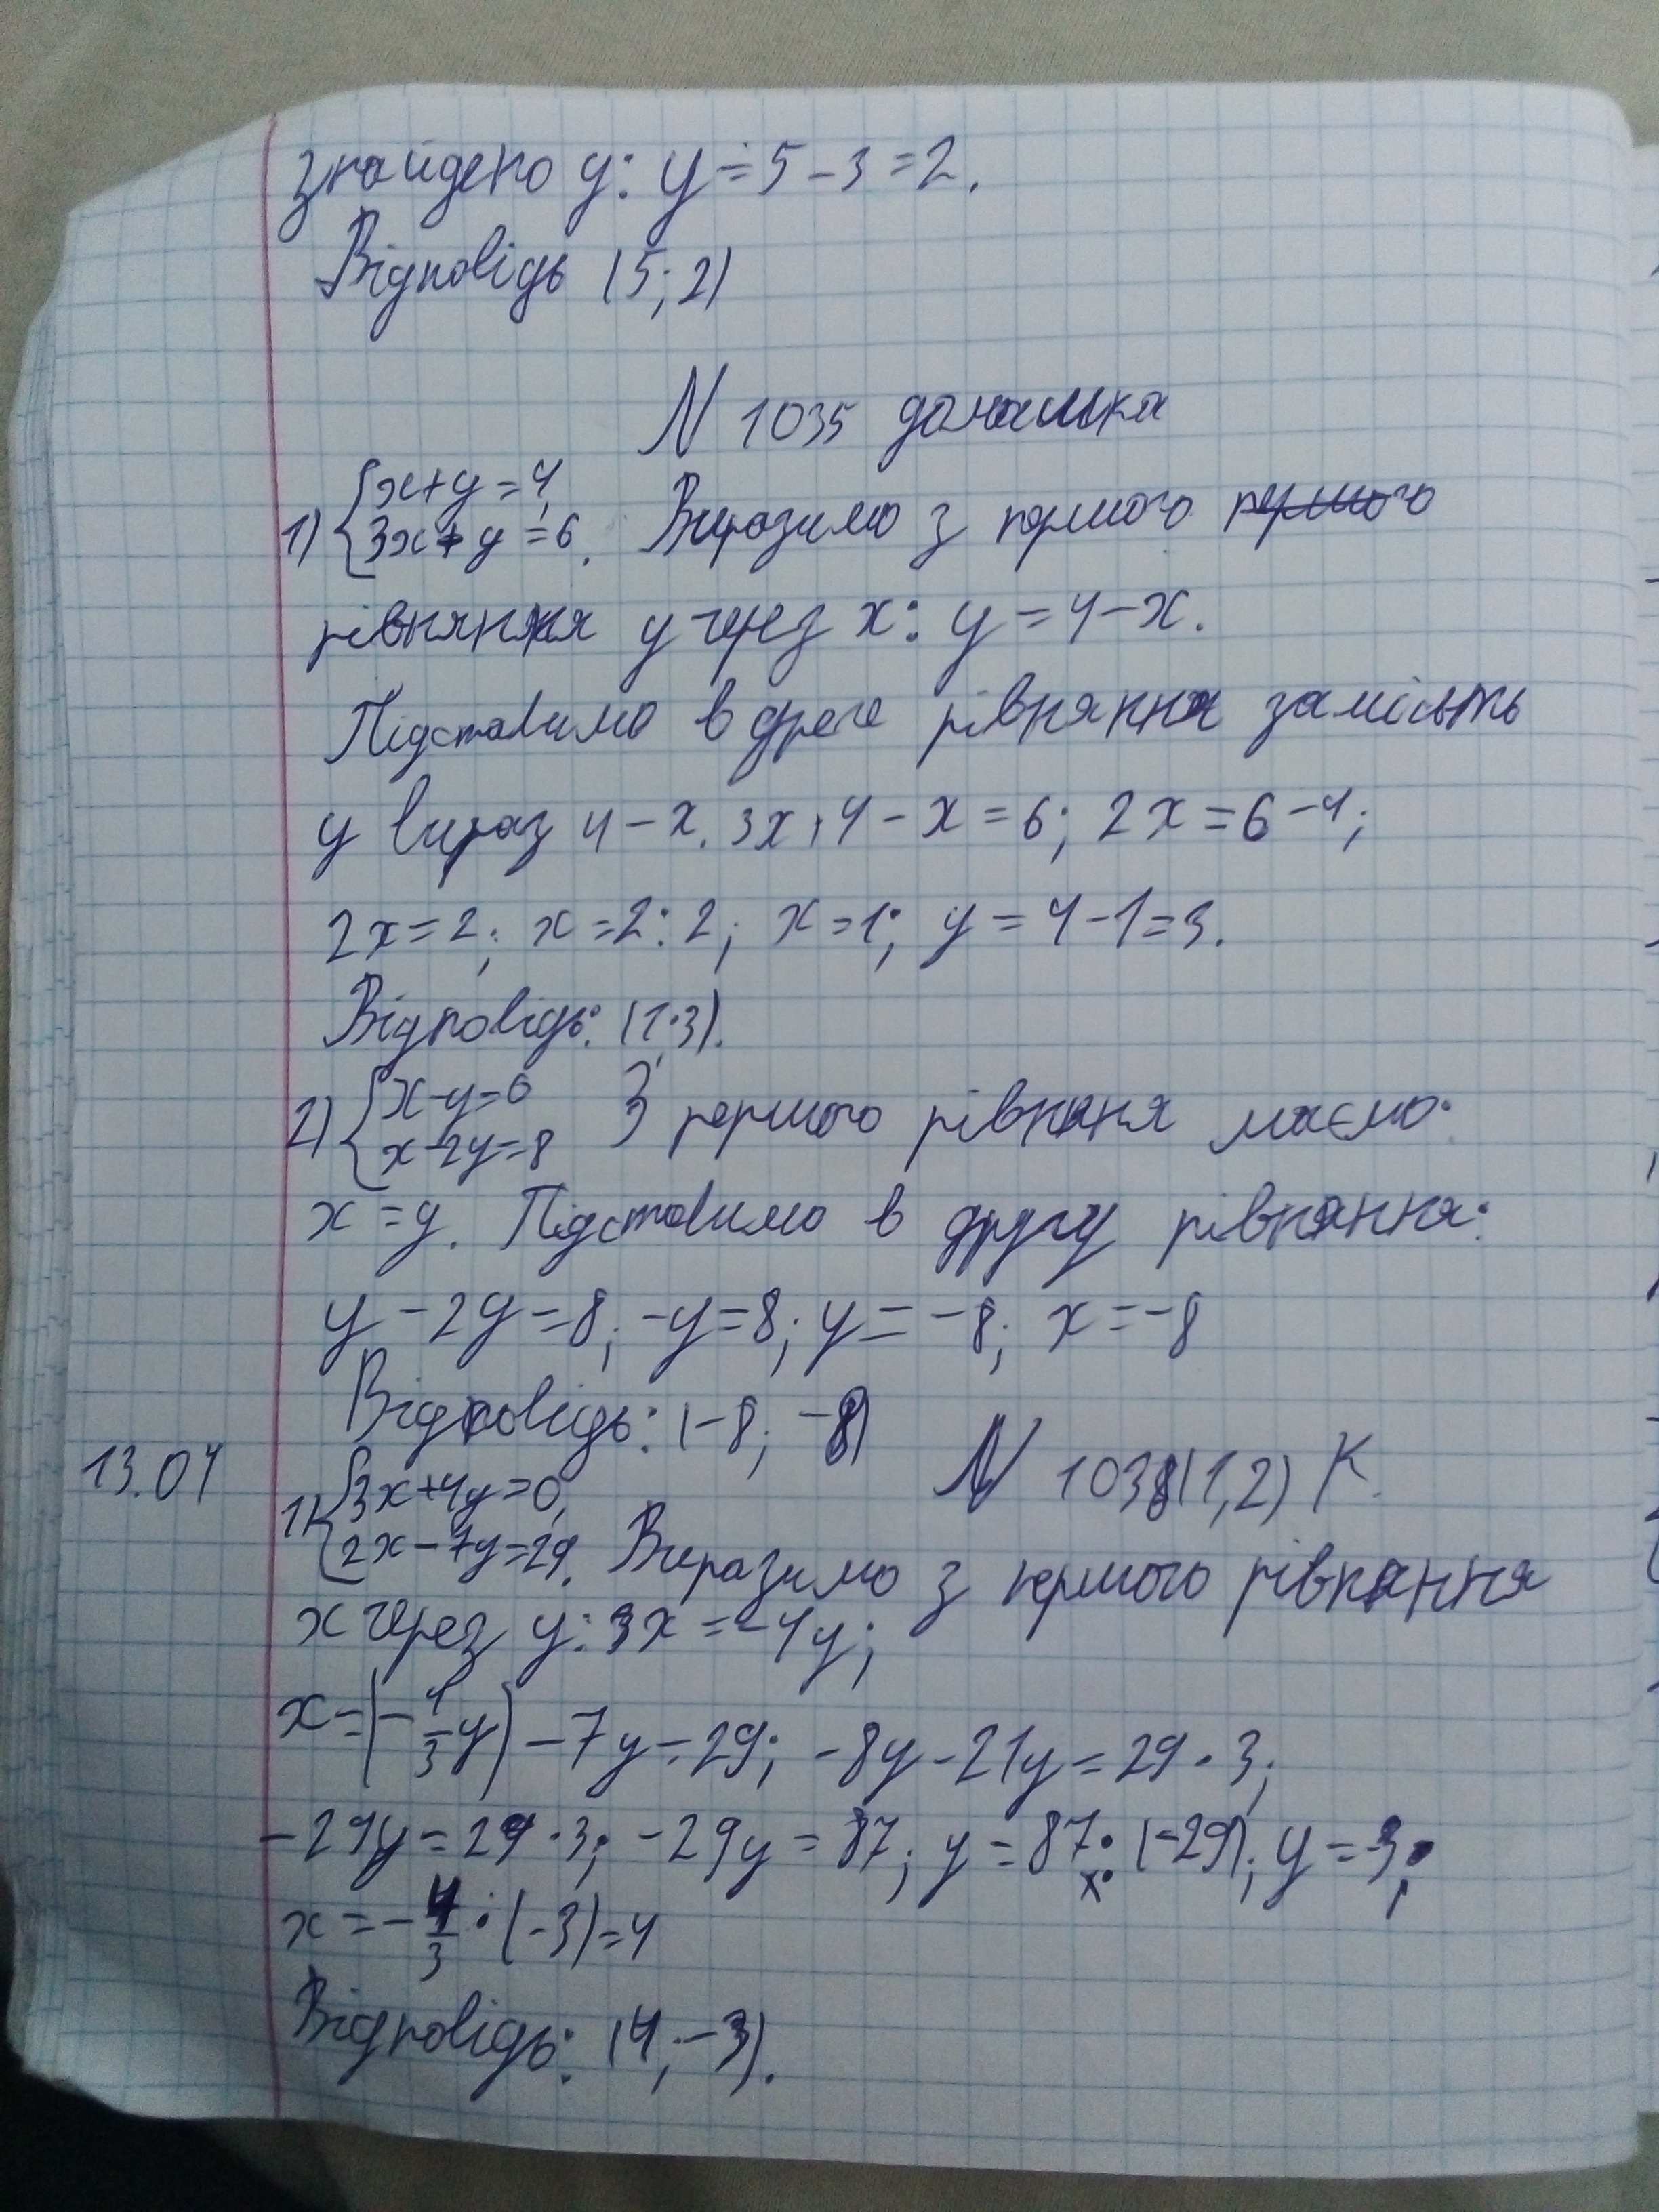 знайдено y: y = 5 - 3 = 2.
Відповідь (5; 2)
N 1035 домашка
1) { x + y = 4,
3x + y = 6. Виразимо з першого першого
рівняння y через x: y = 4 - x.
Підставимо в друге рівняння замість
y вираз 4 - x. 3x + 4 - x = 6; 2x = 6 - 4;
2x = 2; x = 2 : 2; x = 1; y = 4 - 1 = 3.
Відповідь: (1; 3).
2) { x - y = 0
x - 2y = 8 З першого рівняня маємо:
x = y. Підставимо в другу рівняння:
y - 2y = 8; -y = 8; y = -8; x = -8
Відповідь: (-8; -8)
13.04 N 1038(1,2) К.
1) { 3x + 4y = 0,
2x - 7y = 29. Виразимо з першого рівняння
x через y: 3x = -4y;
x = (-4/3 y) - 7y = 29; -8y - 21y = 29 · 3;
-29y = 29 · 3; -29y = 87; y = 87 : (-29); y = -3;
x = -4/3 · (-3) = 4
Відповідь: (4; -3).